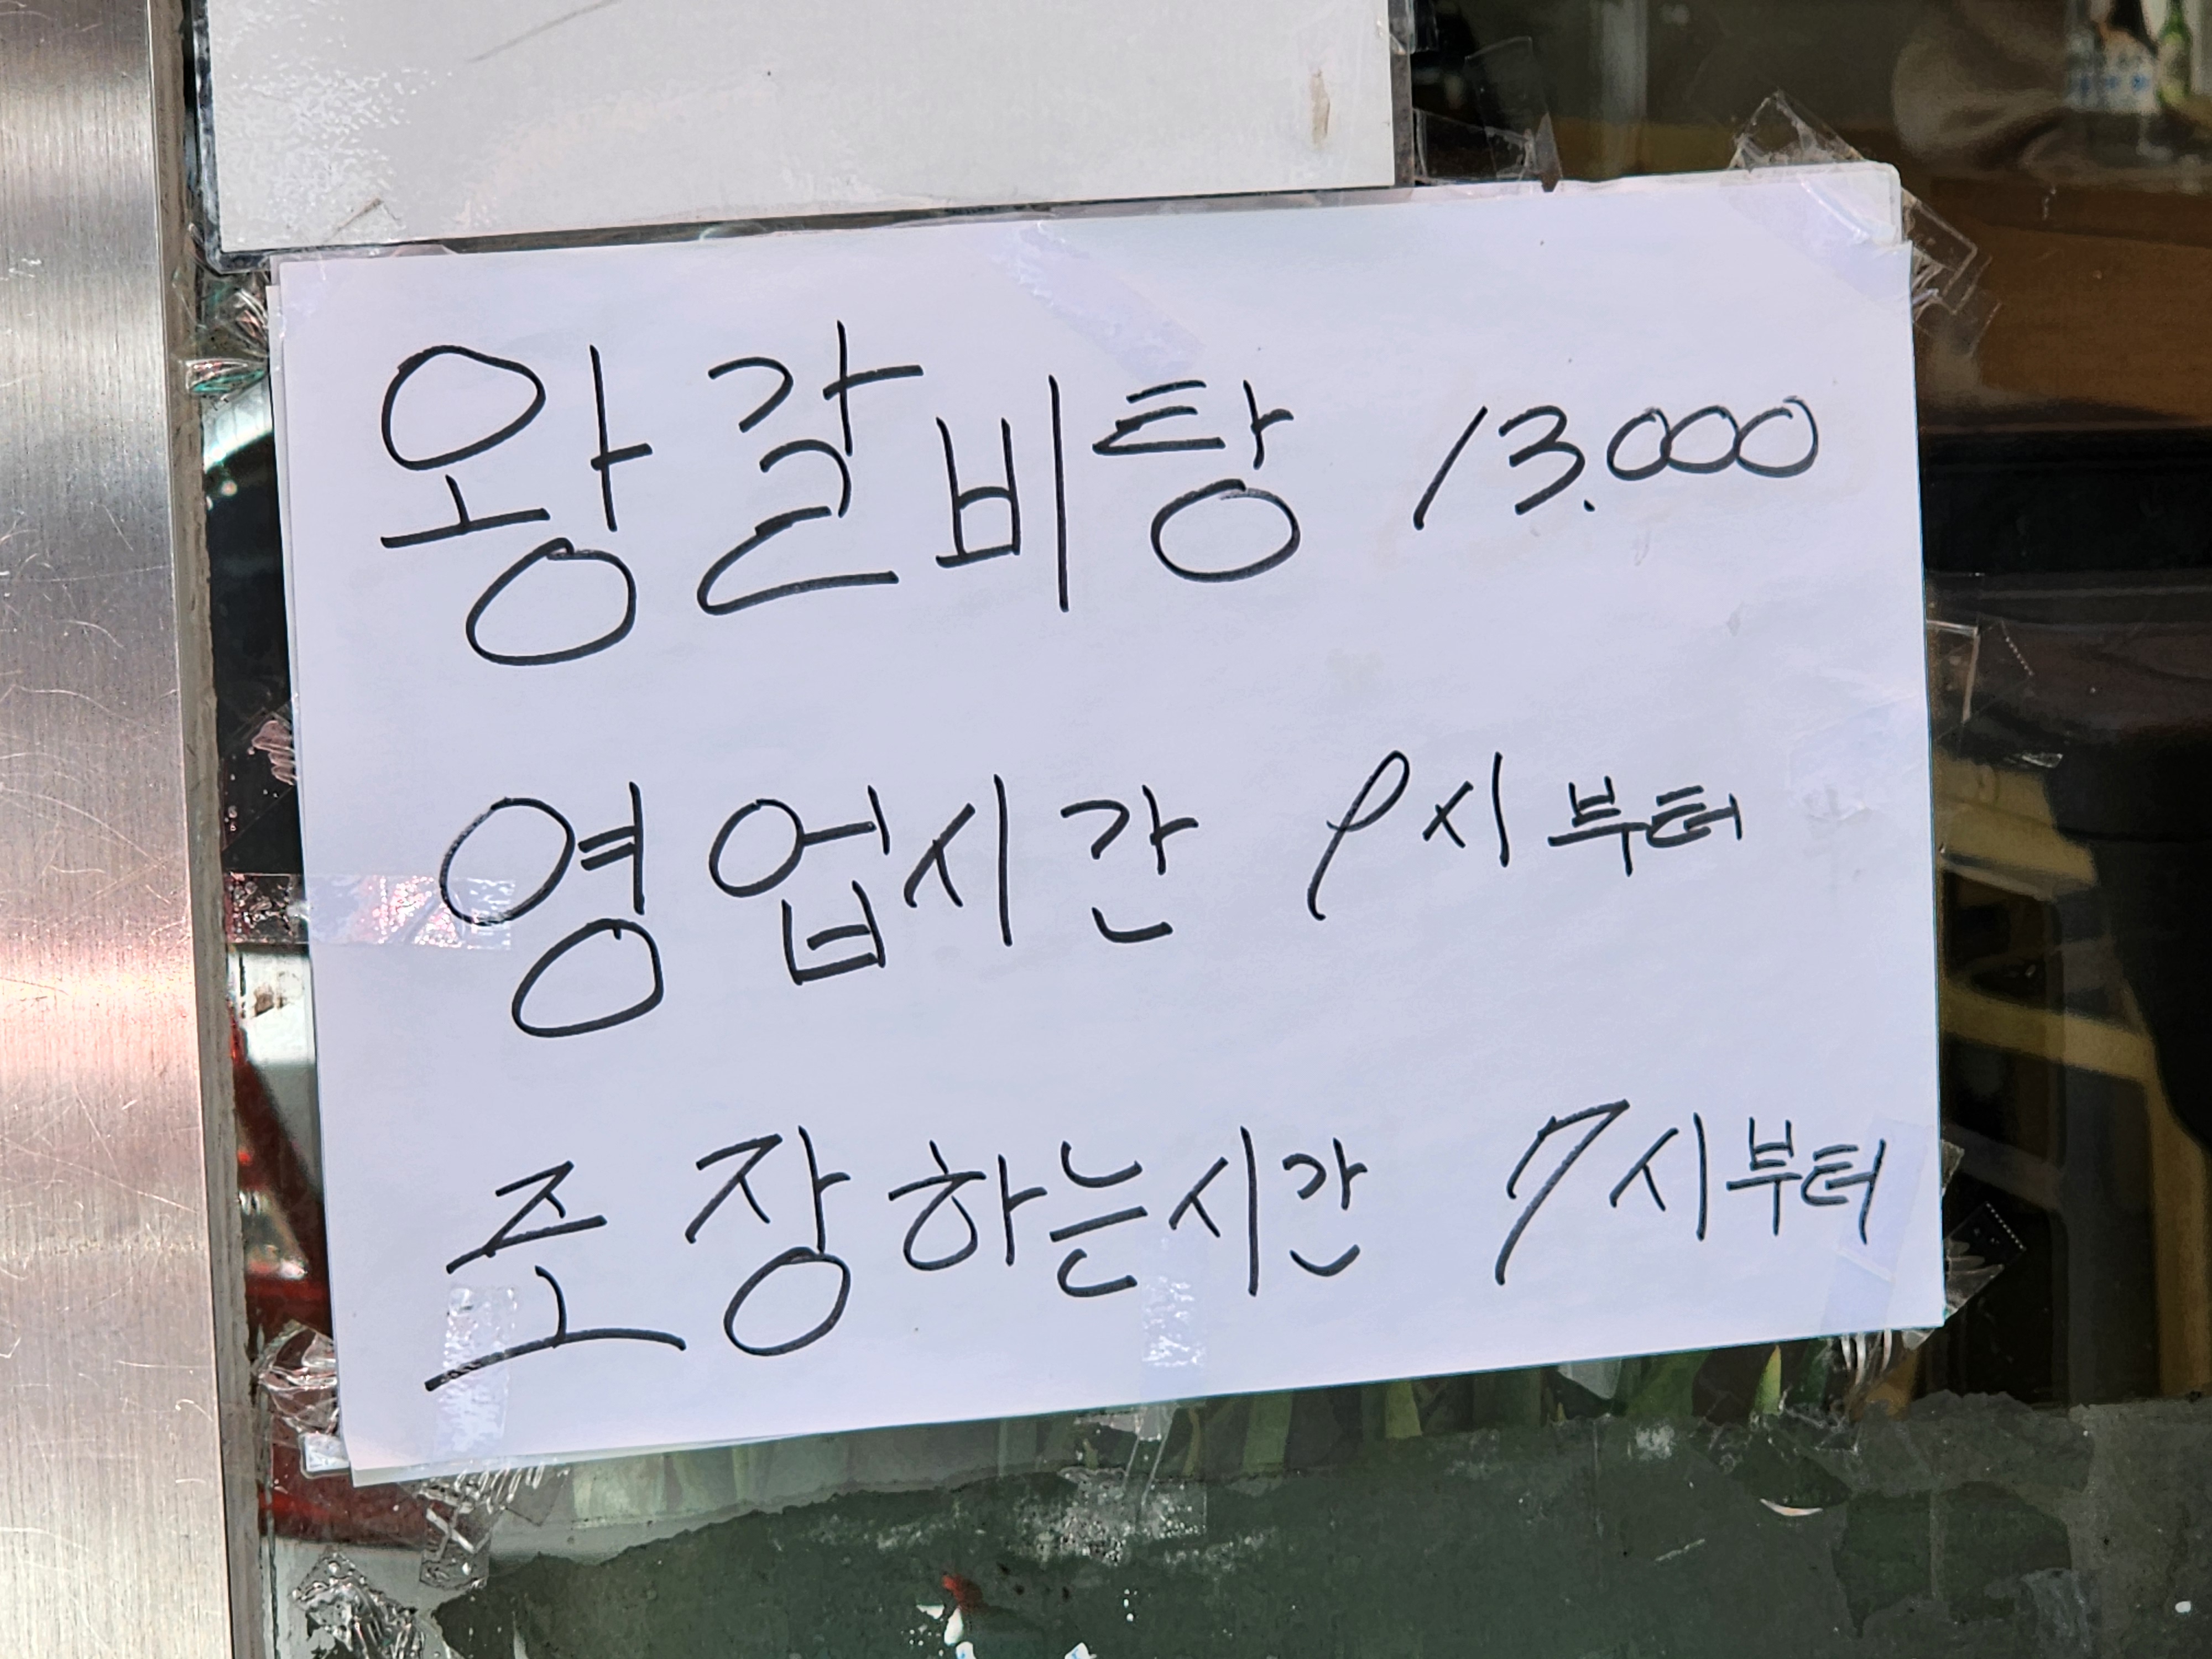 왕갈비탕 13.000
영업시간 9시부터
조장하는시간 7시부터